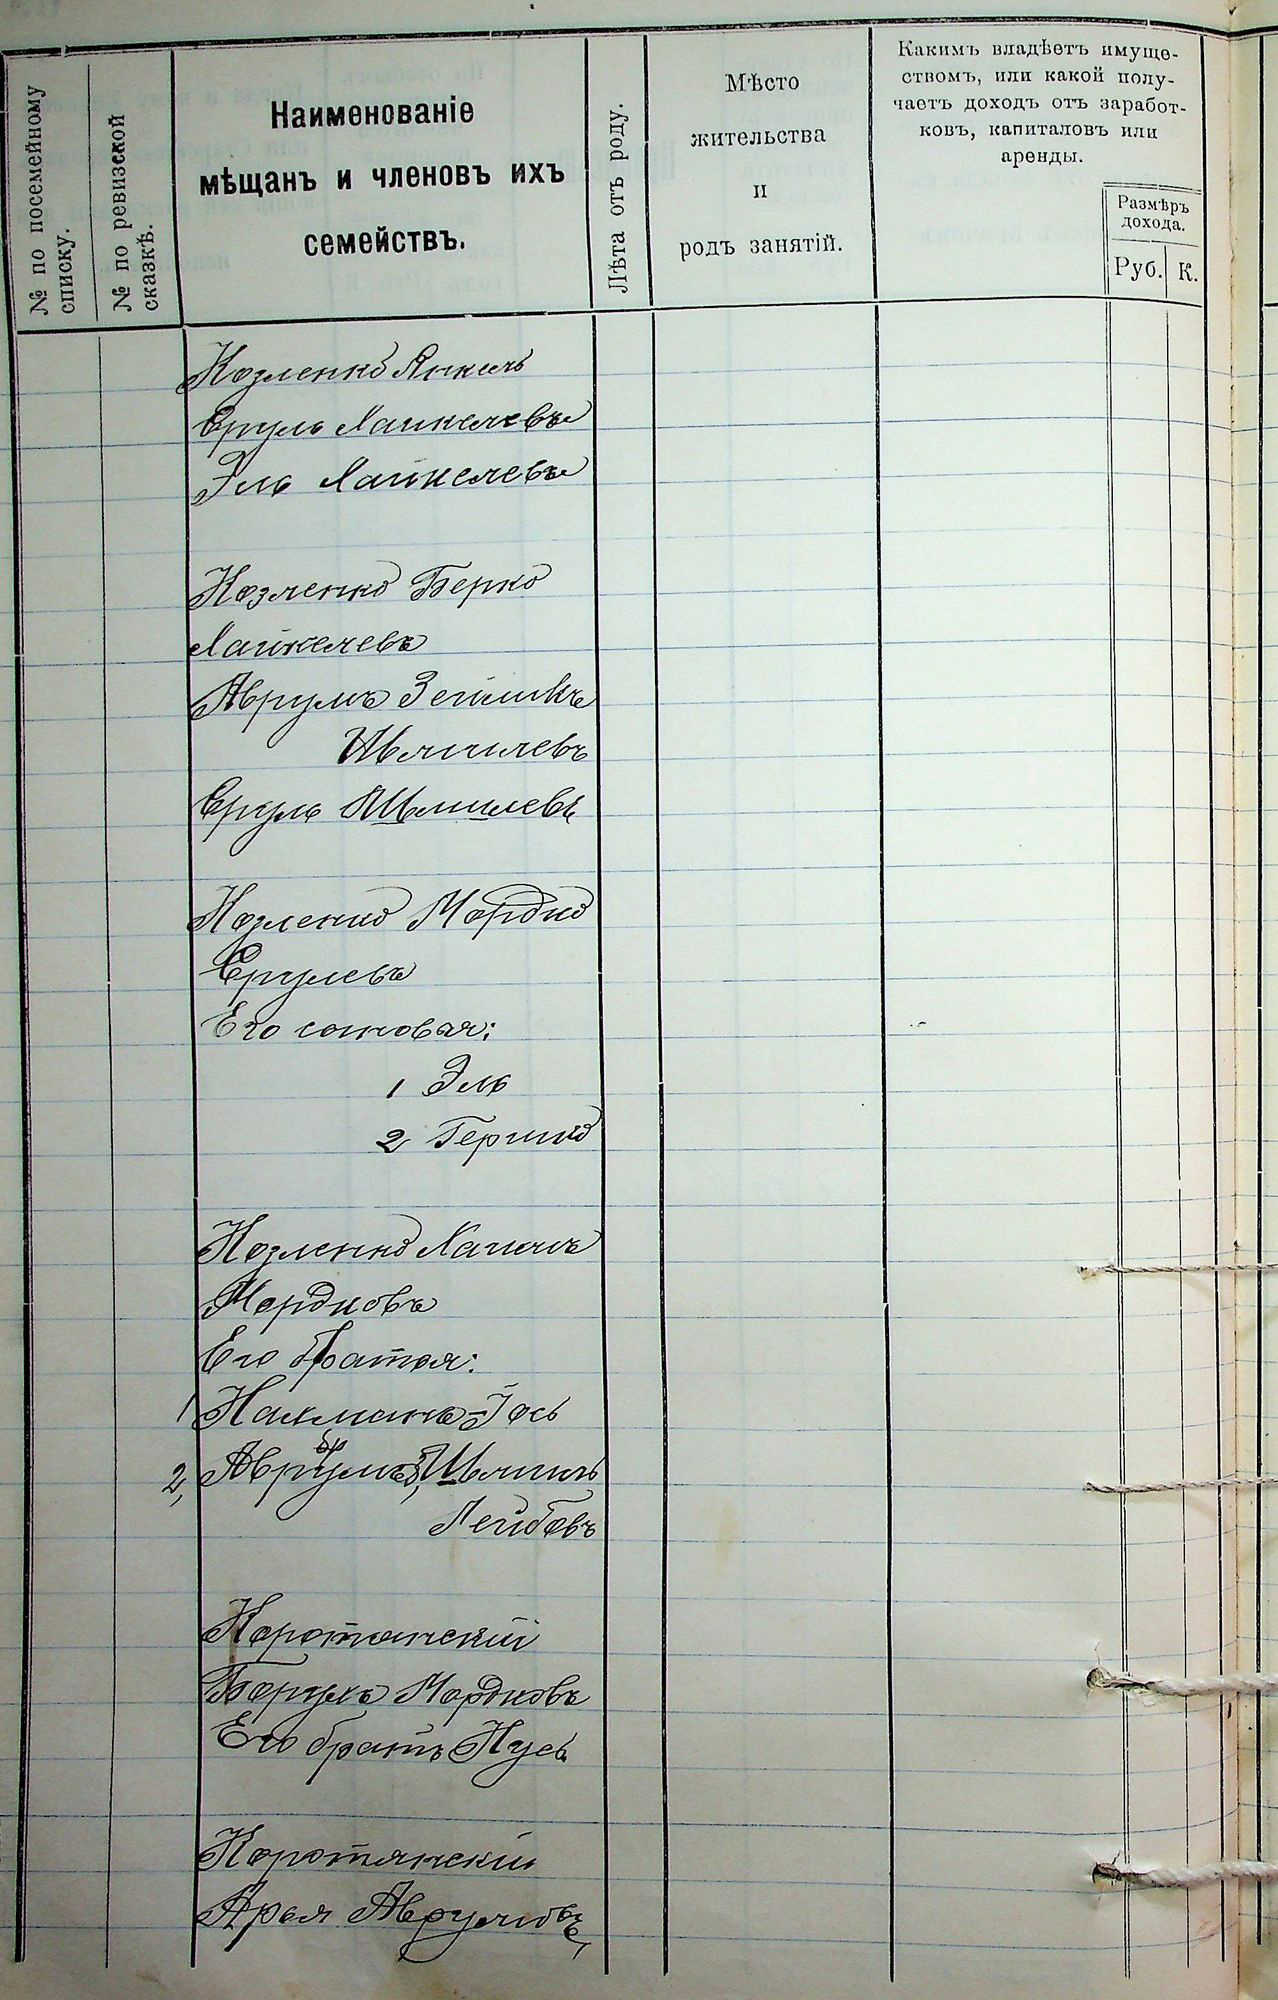 № по посемейному
списку.
№ по ревизской
сказкѣ.
Наименованіе
мѣщанъ и членовъ ихъ
семействъ.
Лѣта отъ роду.
Мѣсто
жительства
и
родъ занятій.
Какимъ владѣетъ имуще-
ствомъ, или какой полу-
чаетъ доходъ отъ заработ-
ковъ, капиталовъ или
аренды.
Размѣръ
дохода.
Руб. К.
Козленко Янкель
Сруль Хайкелевъ
Эль Хайкелевъ
Козленко Берко
Хайкелевъ
Аврумъ Зейликъ
Шмилевъ
Сруль Шмилевъ
Козленко Мордко
Срулевъ
Его сыновья:
1 Эль
2 Гершко
Козленко Хаимъ
Мордковъ
Его братья:
1 Нахманъ-Іось
2, Аврумъ, Шмиль
Лейбовъ
Коротянскій
Борухъ Мордковъ
Его братъ Нусь
Коротянскій
Арья Аврумовъ